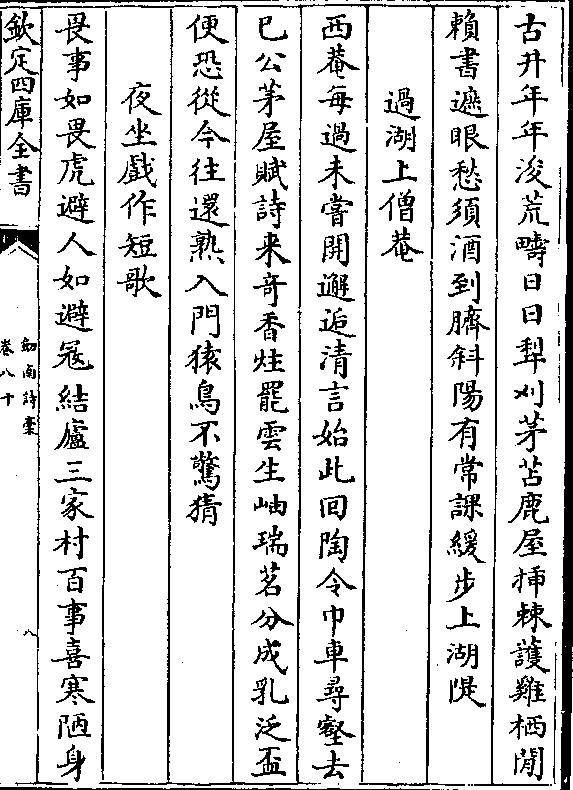 古井年年浚荒疇日日犁刈茅苫鹿屋揷棘護雞栖閒
賴書遮眼愁須酒到臍斜陽有常課緩步上湖隄
過湖上僧菴
西菴每過未嘗開邂逅清言始此回陶令巾車尋壑去
巳公茅屋賦詩来竒香炷罷雲生岫瑞茗分成乳泛盃
便恐從今往還熟入門猿鳥不驚猜
夜坐戲作短歌
畏事如畏虎避人如避冦結廬三家村百事喜寒陋身
欽定四庫全書
劔南詩稾
卷八十
八